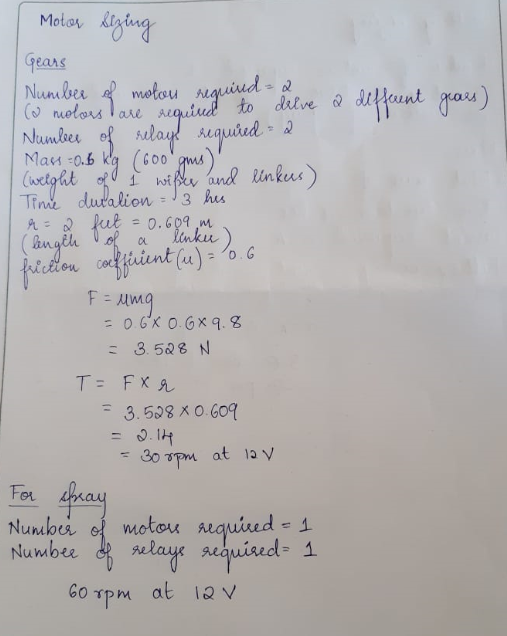 Motor Sizing
Gears
Number of motors required = 2
(2 motors are required to drive 2 different gears)
Number of relays required = 2
Mass = 0.6 kg (600 gms)
(weight of 1 wiper and linkers)
Time duration = 3 hrs
r = 2 feet = 0.609 m
(length of a linker)
friction coefficient (u) = 0.6
F = μmg
= 0.6 x 0.6 x 9.8
= 3.528 N
T = F x r
= 3.528 x 0.609
= 2.14
= 30 rpm at 12 V
For spray
Number of motors required = 1
Number of relays required = 1
60 rpm at 12 V